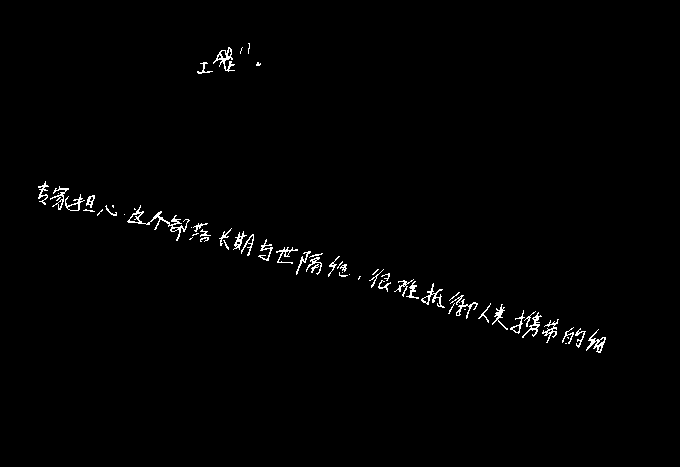 工程”。
专家担心这个部落长期与世隔绝，很难抵御人类携带的细